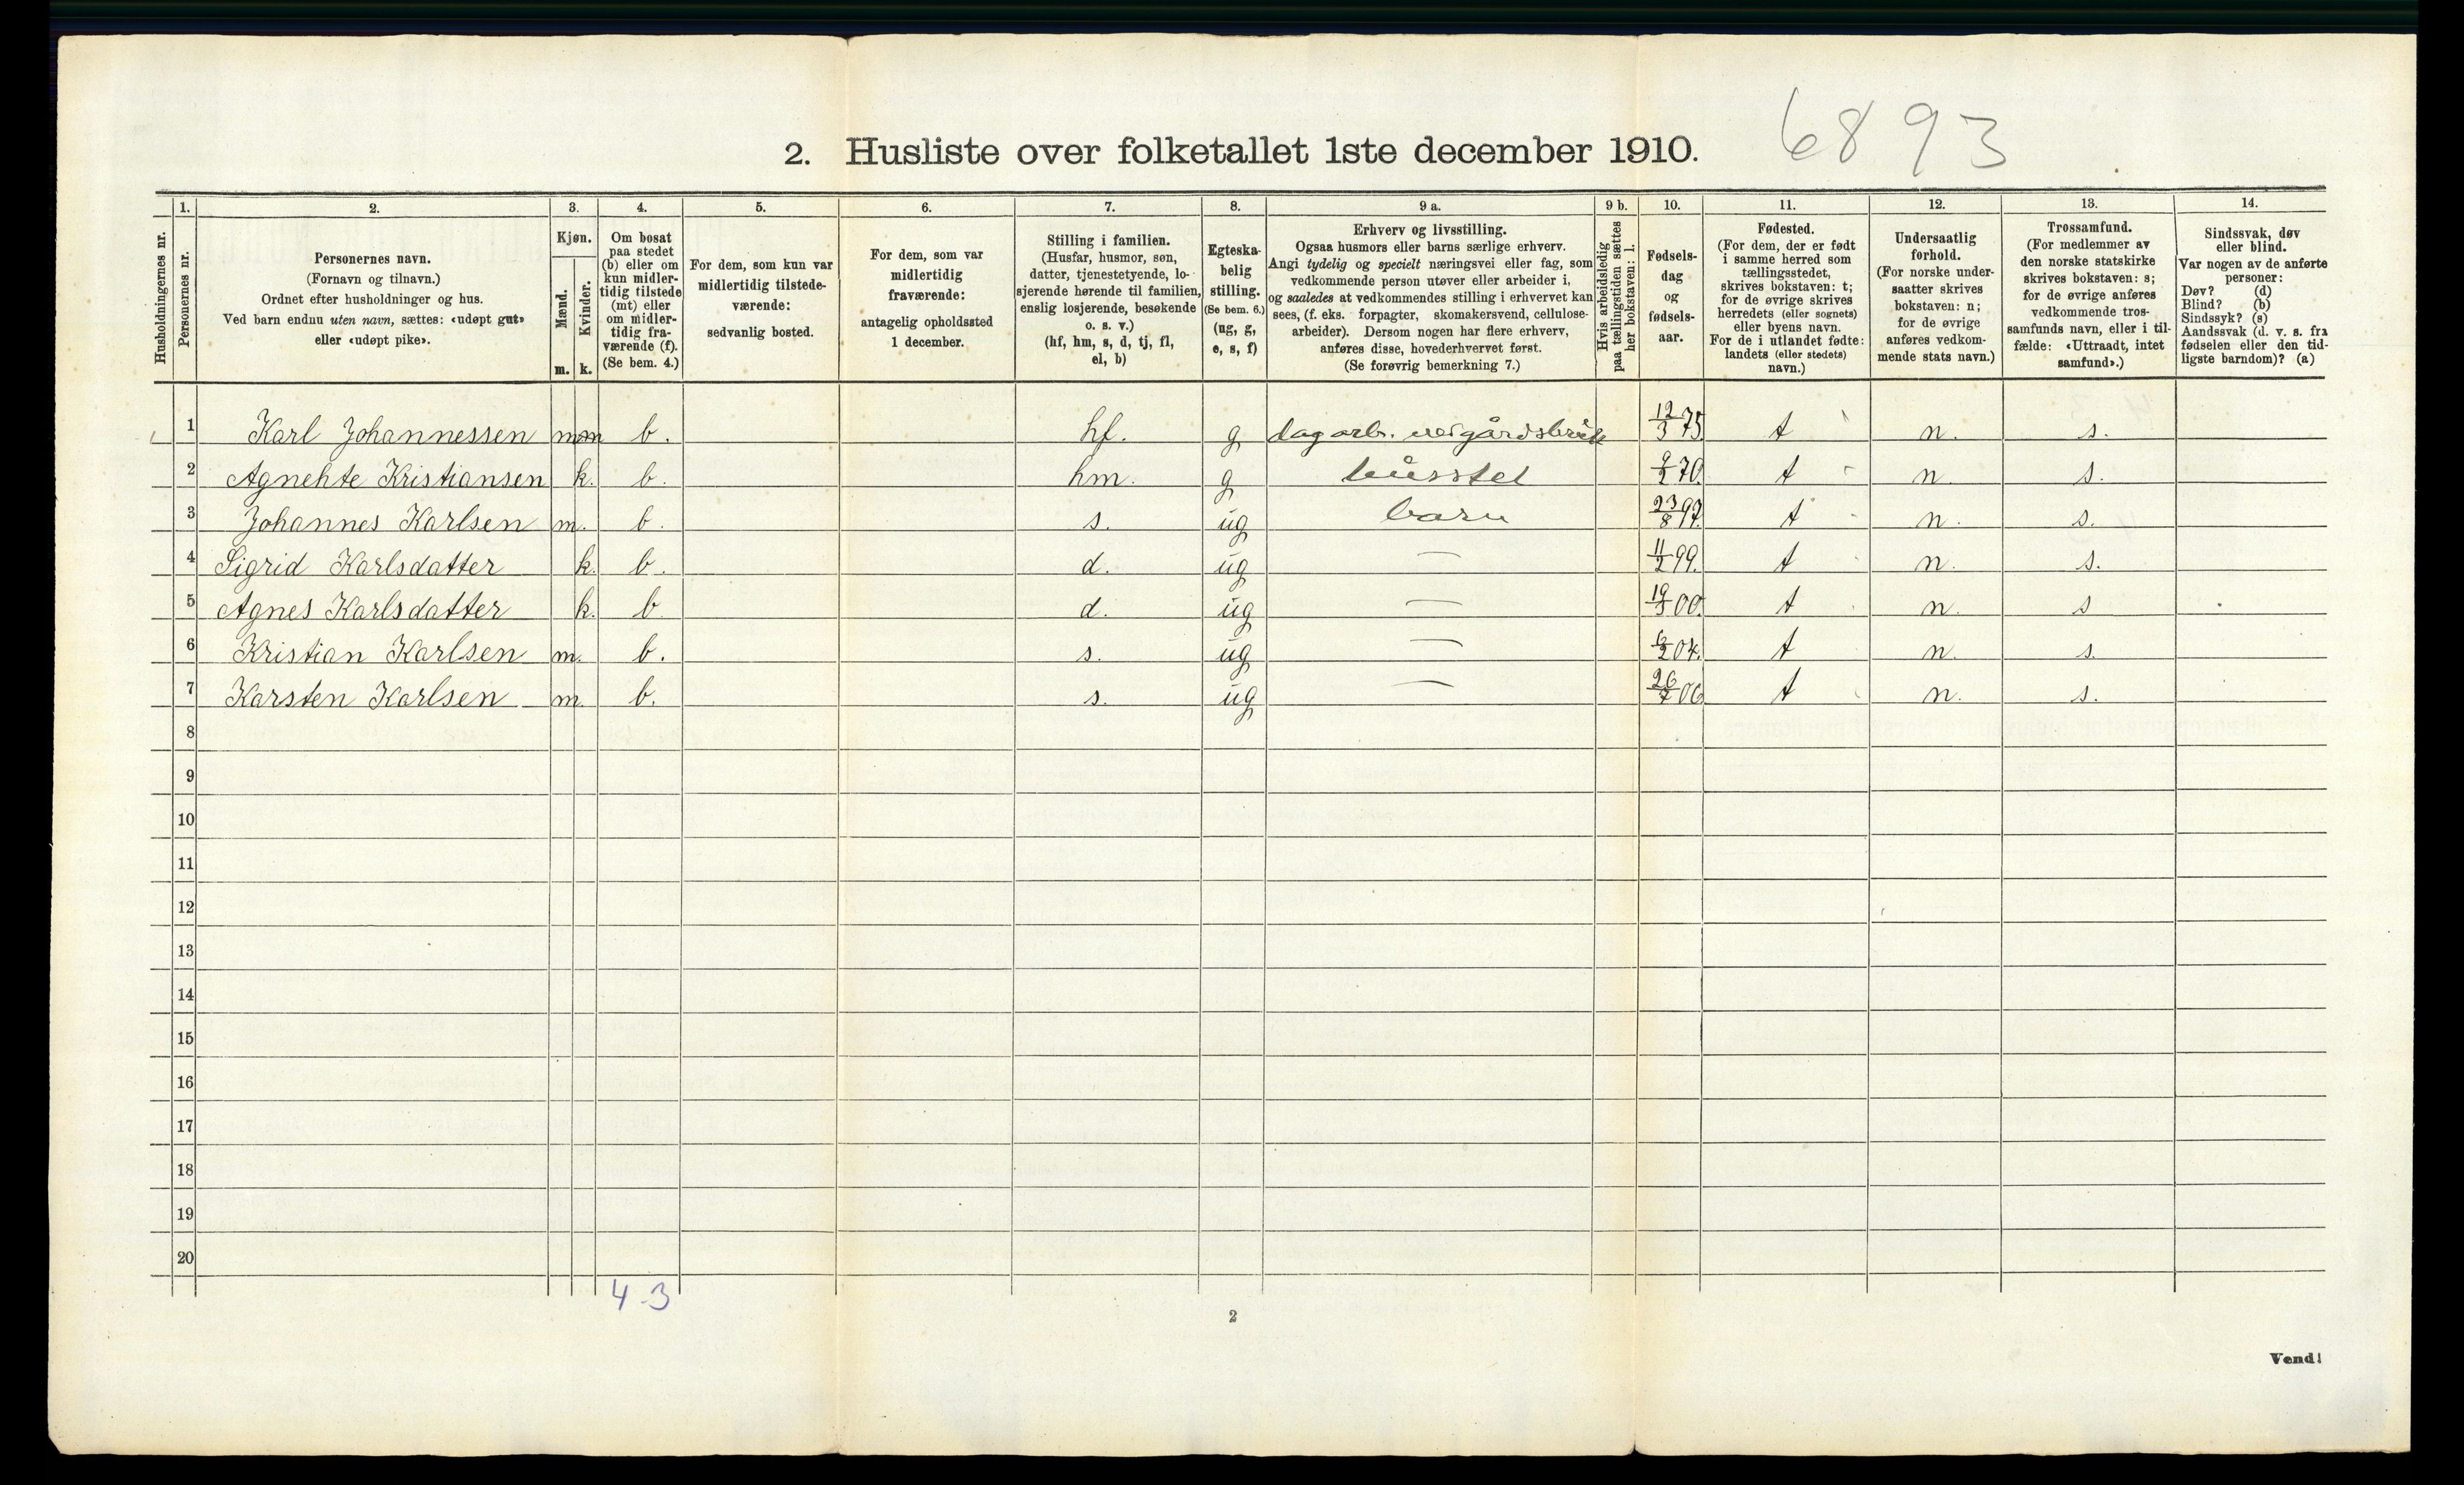 2. Husliste over folketallet 1ste december 1910.
6893
Husholdningernes nr.
1.
Personernes nr.
2.
Personernes navn.
(Fornavn og tilnavn.)
Ordnet efter husholdninger og hus.
Ved barn endnu uten navn, sættes: «udøpt gut»
eller «udøpt pike».
3.
Kjøn.
Mænd.
Kvinder.
m. k.
4.
Om bosat
paa stedet
(b) eller om
kun midler-
tidig tilstede
(mt) eller
om midler-
tidig fra-
værende (f).
(Se bem. 4.)
5.
For dem, som kun var
midlertidig tilstede-
værende:
sedvanlig bosted.
6.
For dem, som var
midlertidig
fraværende:
antagelig opholdssted
1 december.
7.
Stilling i familien.
(Husfar, husmor, søn,
datter, tjenestetyende, lo-
sjerende hørende til familien,
enslig losjerende, besøkende
o. s. v.)
(hf, hm, s, d, tj, fl,
el, b)
8.
Egteska-
belig
stilling.
(Se bem. 6.)
(ug, g,
e, s, f)
9 a.
Erhverv og livsstilling.
Ogsaa husmors eller barns særlige erhverv.
Angi tydelig og specielt næringsvei eller fag, som
vedkommende person utøver eller arbeider i,
og saaledes at vedkommendes stilling i erhvervet kan
sees, (f. eks. forpagter, skomakersvend, cellulose-
arbeider). Dersom nogen har flere erhverv,
anføres disse, hovederhvervet først.
(Se forøvrig bemerkning 7.)
9 b.
Hvis arbeidsledig
paa tællingstiden sættes
her bokstaven: l.
10.
Fødsels-
dag
og
fødsels-
aar.
11.
Fødested.
(For dem, der er født
i samme herred som
tællingsstedet,
skrives bokstaven: t;
for de øvrige skrives
herredets (eller sognets)
eller byens navn.
For de i utlandet fødte:
landets (eller stedets)
navn.)
12.
Undersaatlig
forhold.
(For norske under-
saatter skrives
bokstaven: n;
for de øvrige
anføres vedkom-
mende stats navn.)
13.
Trossamfund.
(For medlemmer av
den norske statskirke
skrives bokstaven: s;
for de øvrige anføres
vedkommende tros-
samfunds navn, eller i til-
fælde: «Uttraadt, intet
samfund».)
14.
Sindssvak, døv
eller blind.
Var nogen av de anførte
personer:
Døv? (d)
Blind? (b)
Sindssyk? (s)
Aandssvak (d. v. s. fra
fødselen eller den tid-
ligste barndom)? (a)
1 Karl Johannessen m b. hf. g dagarb. 12/3 75 t n. s.
2 Agnehte Kristiansen k. b. hm. g husstel 9/2 70. t n. s.
3 Johannes Karlsen m. b. s. ug barn 23/8 97. t n. s.
4 Sigrid Karlsdatter k. b. d. ug — 11/2 99. t n. s.
5 Agnes Karlsdatter k. b d. ug — 19/5 00. t n. s
6 Kristian Karlsen m. b. s. ug — 6/2 04. t n. s.
7 Karsten Karlsen m. b. s. ug — 26/7 06 t n. s.
8
9
10
11
12
13
14
15
16
17
18
19
20
4-3
2
Vend!